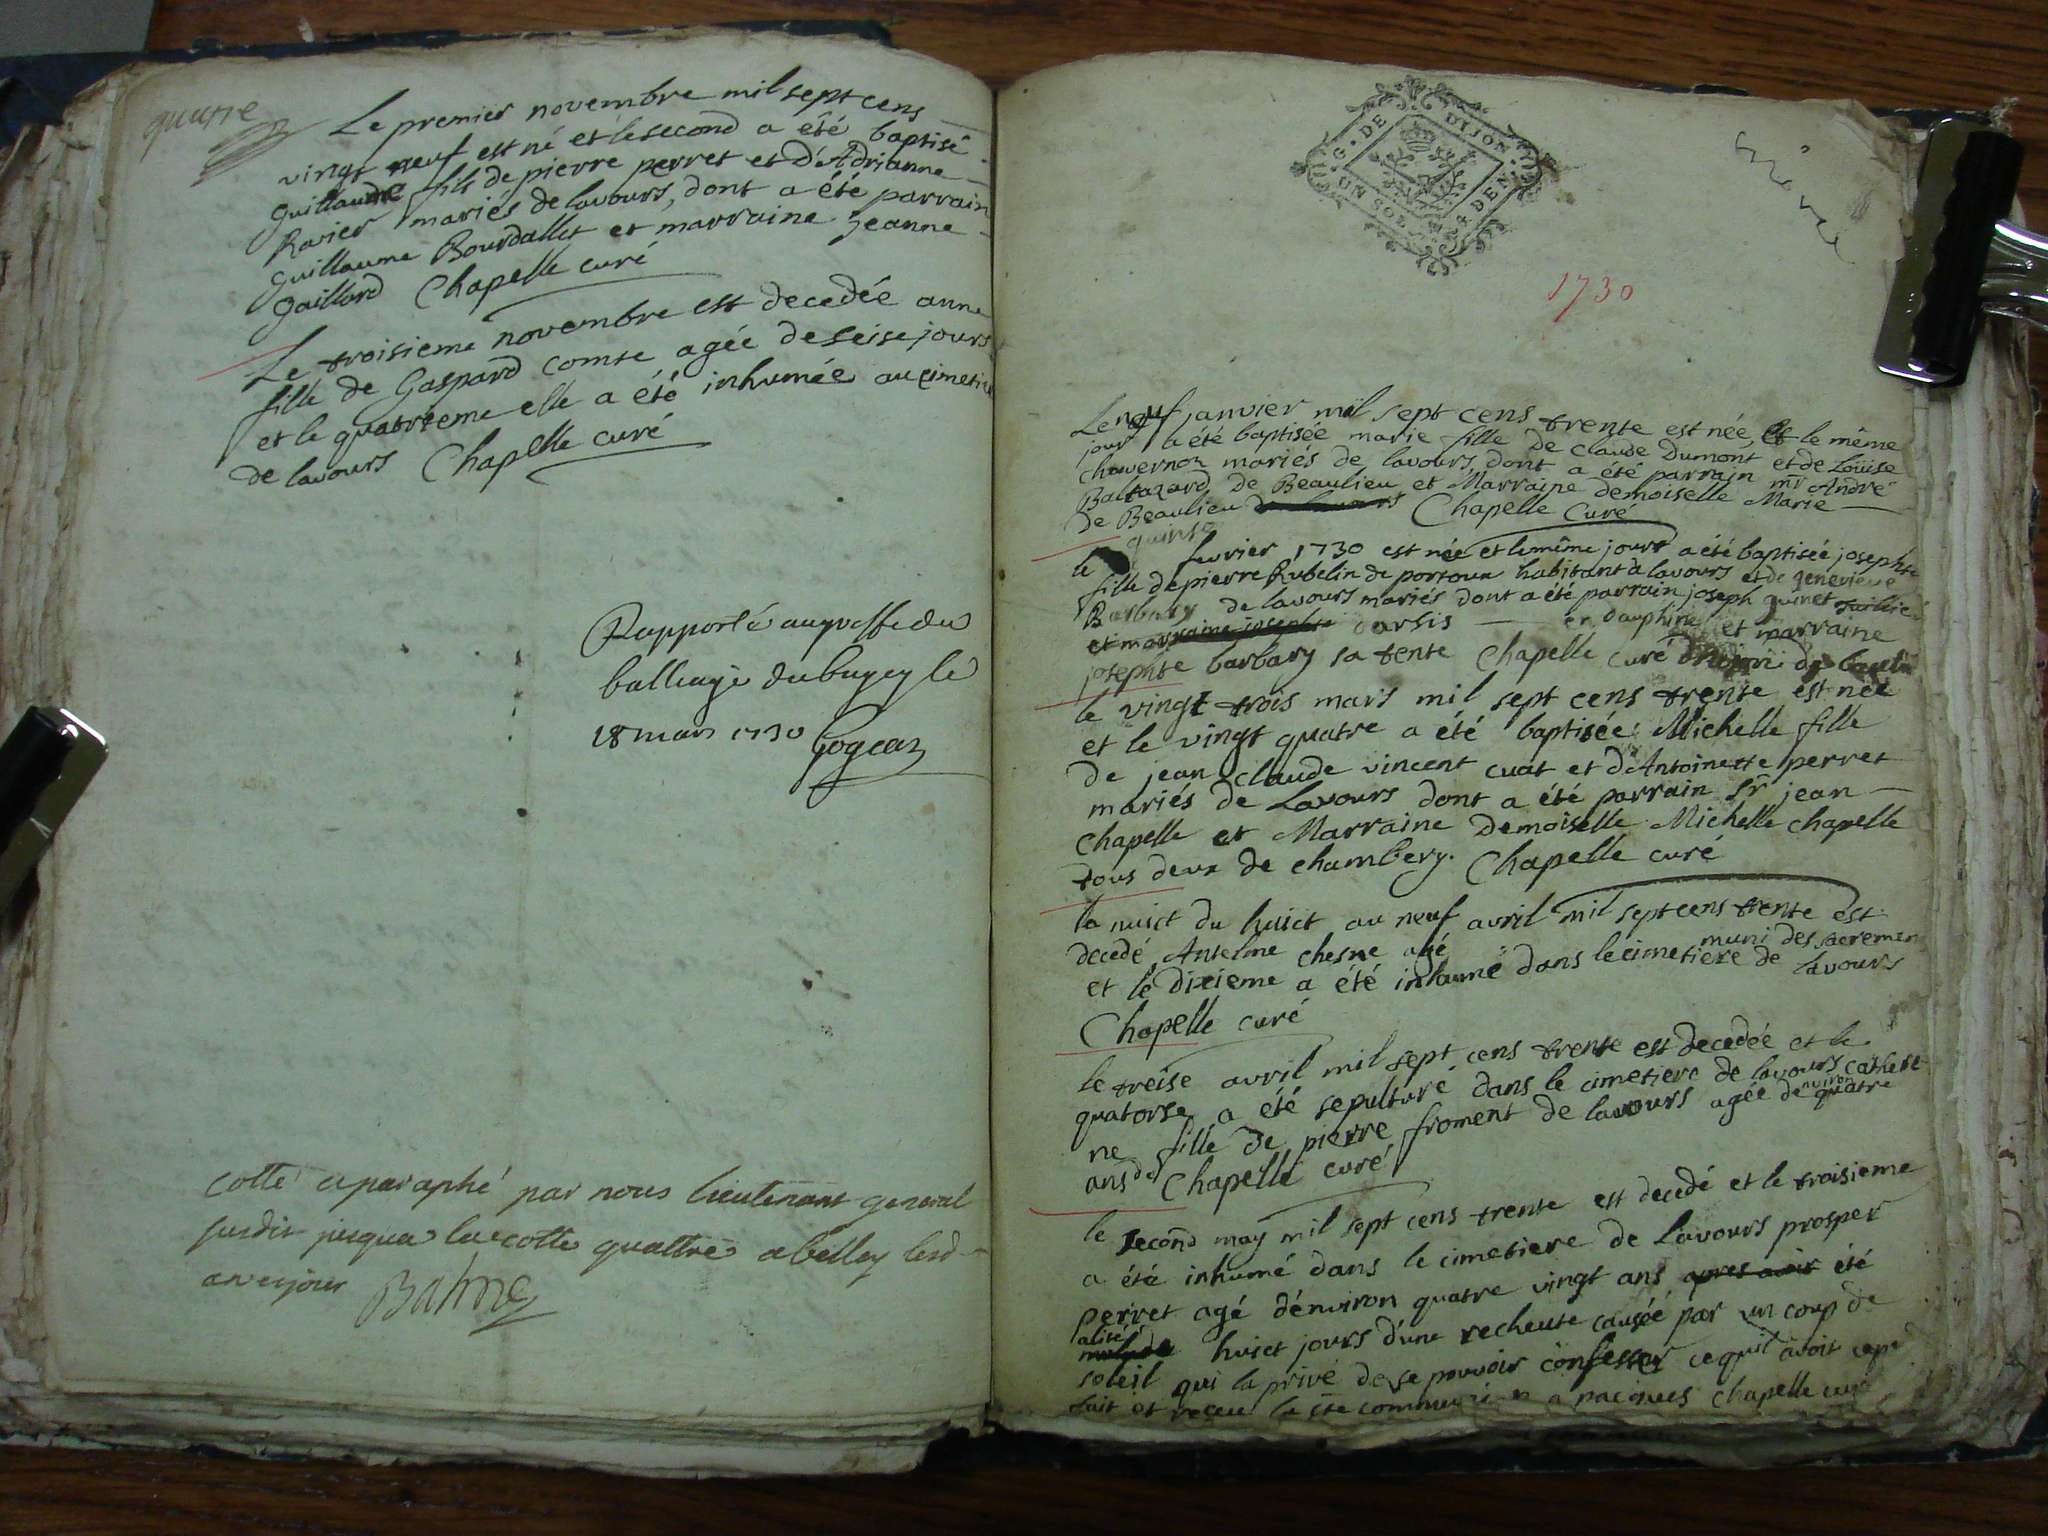 quatre
Le premier novembre mil sept cens
vingt neuf est né et le second a été baptisé
Guillaume fils de pierre perret et d'Adrianne
Ravier mariés de lavours, dont a été parrain
Guillaume Bourdallet et marraine Jeanne
Gaillard Chapelle curé
Le troisieme novembre est decedée anne
fille de Gaspard comte agée de seise jours
et le quatrieme elle a été inhumée au cimetie
de lavours Chapelle curé
Rapporté au greffe du
balliage du bugey le
18 mars 1730
cotté et paraphé par nous lieutenant general
susdit jusqua la cotte quattre a belley lesd
an et jour Balme
G. DE DIJON
UN SOL 4 DEN.
1730
Le neuf janvier mil sept cens trente est née et le même
jour a été baptisée marie fille de Claude Dumont et de Loüise
chavernoz mariés de lavours dont a été parrain mr André
Baltazard de Beaulieu et Marraine demoiselle Marie
de Beaulieu Chapelle Curé
quinse
le fevrier 1730 est née et le même jour a été baptisée josephte
fille de pierre Rubelin de portoux habitant a lavours et de genevieve
Barbary de lavours mariés dont a été parrain joseph guinet
et marraine josephte darsis en dauphiné et marraine
josephte barbary sa tente Chapelle curé
le vingt trois mars mil sept cens trente est née
et le vingt quatre a été baptisée Michelle fille
de jean claude vincent cuat et d'Antoinette perret
mariés de Lavours dont a été parrain Sr jean
Chapelle et Marraine Demoiselle Michelle Chapelle
tous deux de chambery. Chapelle curé
la nuict du huict au neuf avril mil sept cens trente est
decedé Antelme chesne agé muni des sacremen
et le dixieme a été inhumé dans le cimetiere de lavours
Chapelle curé
le treise avril mil sept cens trente est decedée et le
quatorse a été sepulturé dans le cimetiere de lavours cathere
ne fille de pierre froment de lavours agée denviron quatre
ans Chapelle curé
le second may mil sept cens trente est decedé et le troisieme
a été inhumé dans le cimetiere de Lavours prosper
perret agé d'environ quatre vingt ans apres avoir été
alité
malade huict jours d'une recheute causée par un coup de
soleil qui la privé de se pouvoir confesser ce quil avoit
fait et receu la ste communion a paques Chapelle curé